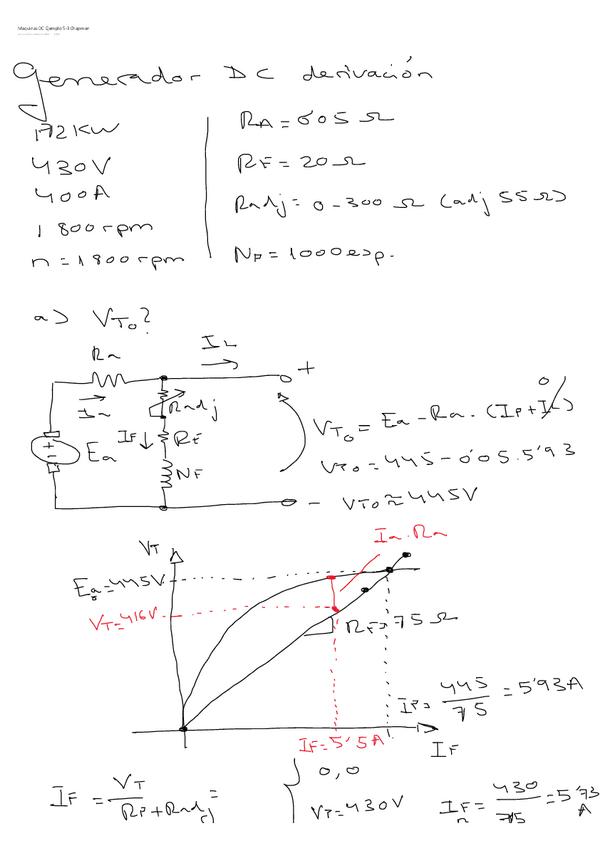 Maquinas DC Ejemplo 5-3 Chapman
Generador DC derivación
172 KW
430V
400A
1800rpm
n = 1800rpm
RA = 0'05 Ω
RF = 20 Ω
Radj = 0-300 Ω (adj 55 Ω)
NF = 1000 esp.
a) VTo?
Ra
IL
+
Ia
Radj
IF
RF
Ea
NF
-
0
VTo = Ea - Ra · (IF + IL)
VTo = 445 - 0'05 · 5'93
VTo ≈ 445V
VT
Ia · Ra
Ea = 445V
VT = 416V
RF = 75 Ω
IF = 445/75 = 5'93A
IF = 5'5A
IF
IF = VT/(RF + Radj) =
0,0
VT = 430V
IFn = 430/75 = 5'73 A